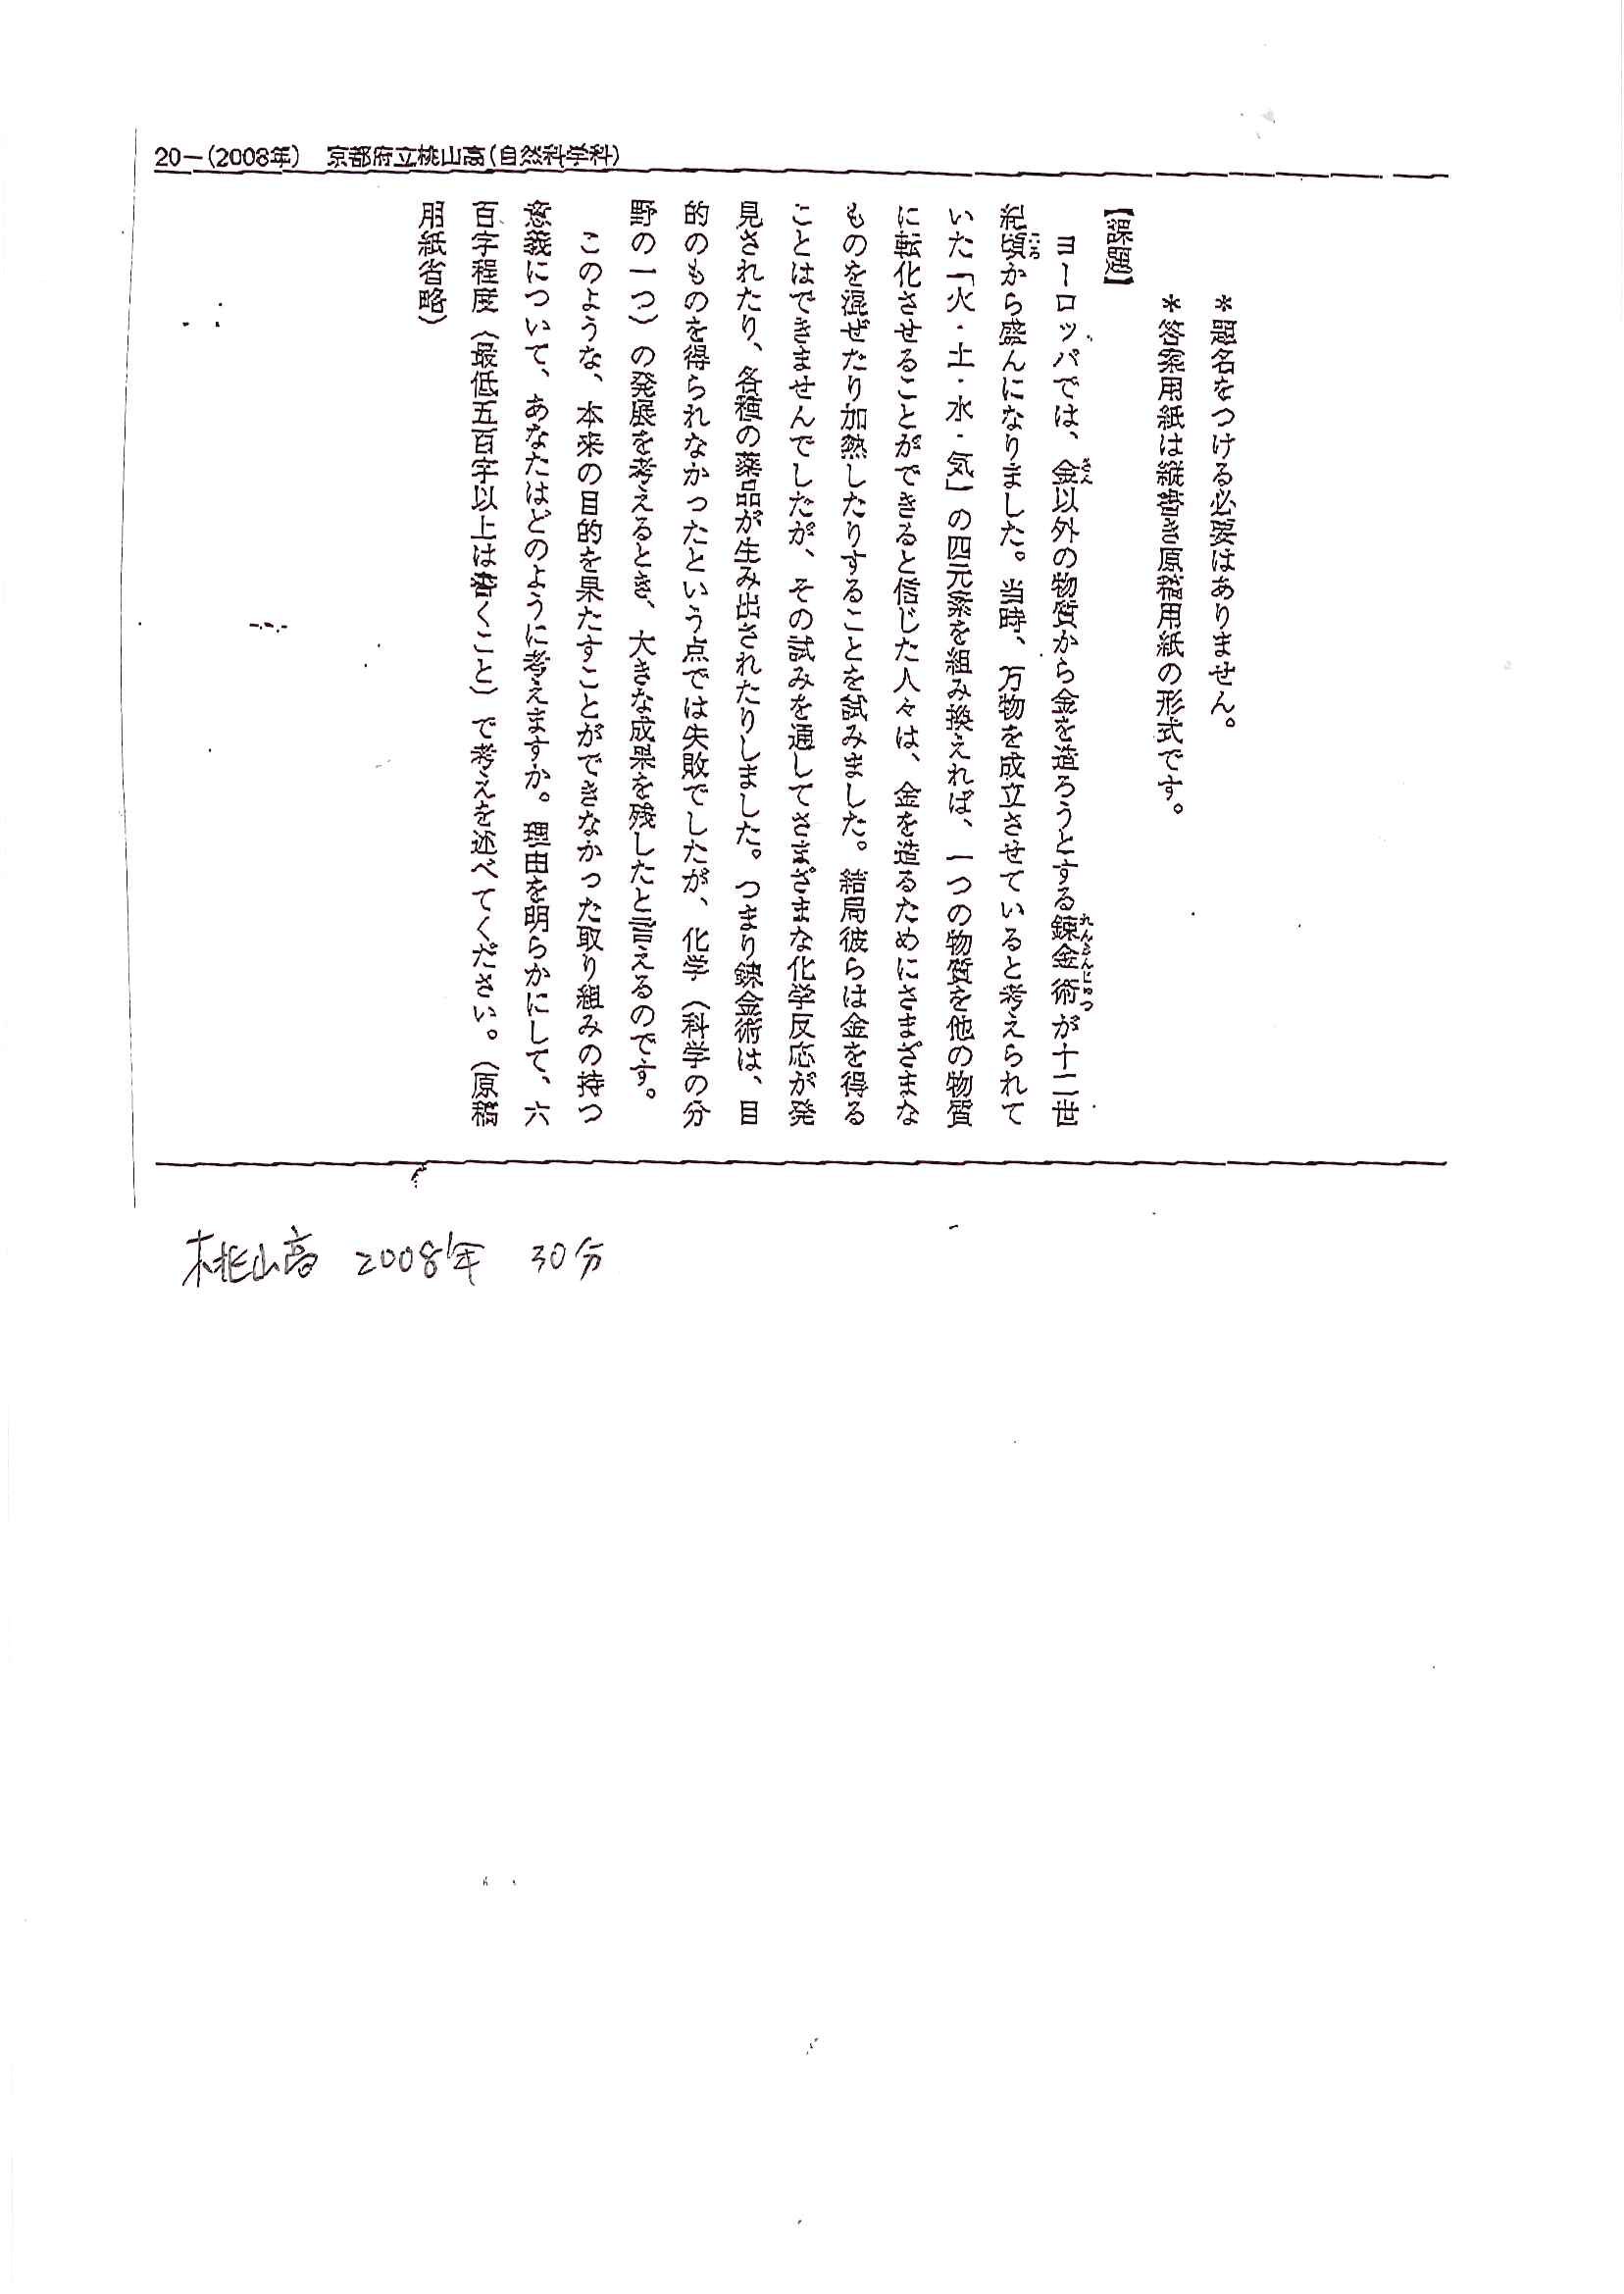 20−(2008年) 京都府立桃山高(自然科学科)
＊題名をつける必要はありません。
＊答案用紙は縦書き原稿用紙の形式です。
【課題】
ヨーロッパでは、金以外の物質から金を造ろうとする錬金術が十二世
紀頃から盛んになりました。当時、万物を成立させていると考えられて
いた「火・土・水・気」の四元素を組み換えれば、一つの物質を他の物質
に転化させることができると信じた人々は、金を造るためにさまざまな
ものを混ぜたり加熱したりすることを試みました。結局彼らは金を得る
ことはできませんでしたが、その試みを通してさまざまな化学反応が発
見されたり、各種の薬品が生み出されたりしました。つまり錬金術は、目
的のものを得られなかったという点では失敗でしたが、化学（科学の分
野の一つ）の発展を考えるとき、大きな成果を残したと言えるのです。
このような、本来の目的を果たすことができなかった取り組みの持つ
意義について、あなたはどのように考えますか。理由を明らかにして、六
百字程度（最低五百字以上は書くこと）で考えを述べてください。（原稿
用紙省略）
桃山高 2008年 30分